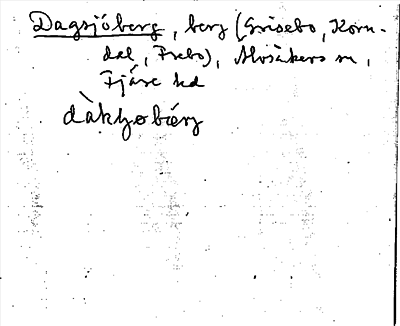 Dagsjöberg, berg (Grisebo, Korn-
dal, Frebo), Älvsåkers sn,
Fjäre hd
dàkʃobærj